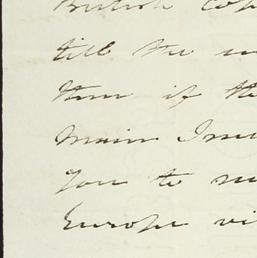 British Co
till the
them if the
main
you to
Europe vi